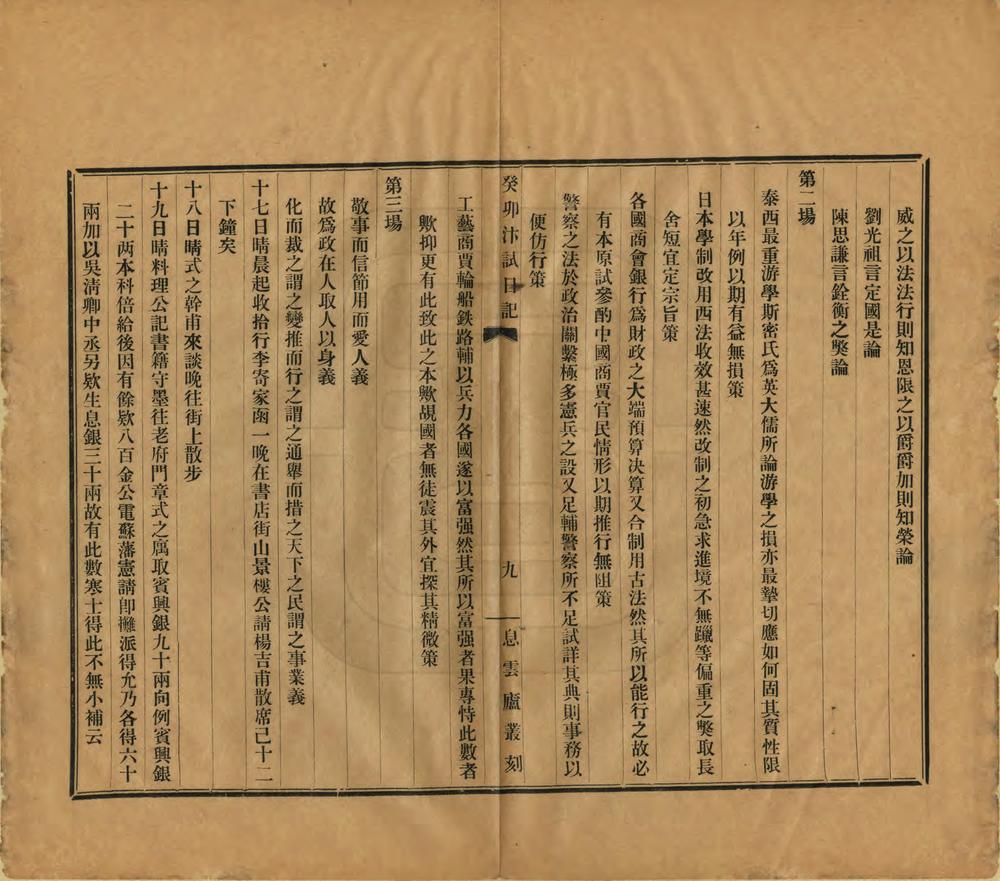 威之以法法行則知恩限之以爵爵加則知榮論
劉光祖言定國是論
陳思謙言銓衡之獘論
第二場
泰西最重游學斯密氏爲英大儒所論游學之損亦最摯切應如何固其質性限
以年例以期有益無損策
日本學制改用西法收效甚速然改制之初急求進境不無躐等偏重之獘取長
舍短宜定宗旨策
各國商會銀行爲財政之大端預算決算又合制用古法然其所以能行之故必
有本原試參酌中國商賈官民情形以期推行無阻策
警察之法於政治關繫極多憲兵之設又足輔警察所不足試詳其典則事務以
便仿行策
癸卯汴試日記
九
息雲廬叢刻
工藝商賈輪船鉄路輔以兵力各國遂以富强然其所以富强者果專恃此數者
歟抑更有此致此之本歟覘國者無徒震其外宜探其精微策
第三場
敬事而信節用而愛人義
故爲政在人取人以身義
化而裁之謂之變推而行之謂之通舉而措之天下之民謂之事業義
十七日晴晨起收拾行李寄家函一晚在書店街山景樓公請楊吉甫散席已十二
下鐘矣
十八日晴式之幹甫來談晚往街上散步
十九日晴料理公記書籍守墨往老府門章式之寓取賓興銀九十兩向例賓興銀
二十兩本科倍給後因有餘欵八百金公電蘇藩憲請卽攤派得允乃各得六十
兩加以吳清卿中丞另欵生息銀三十兩故有此數寒士得此不無小補云